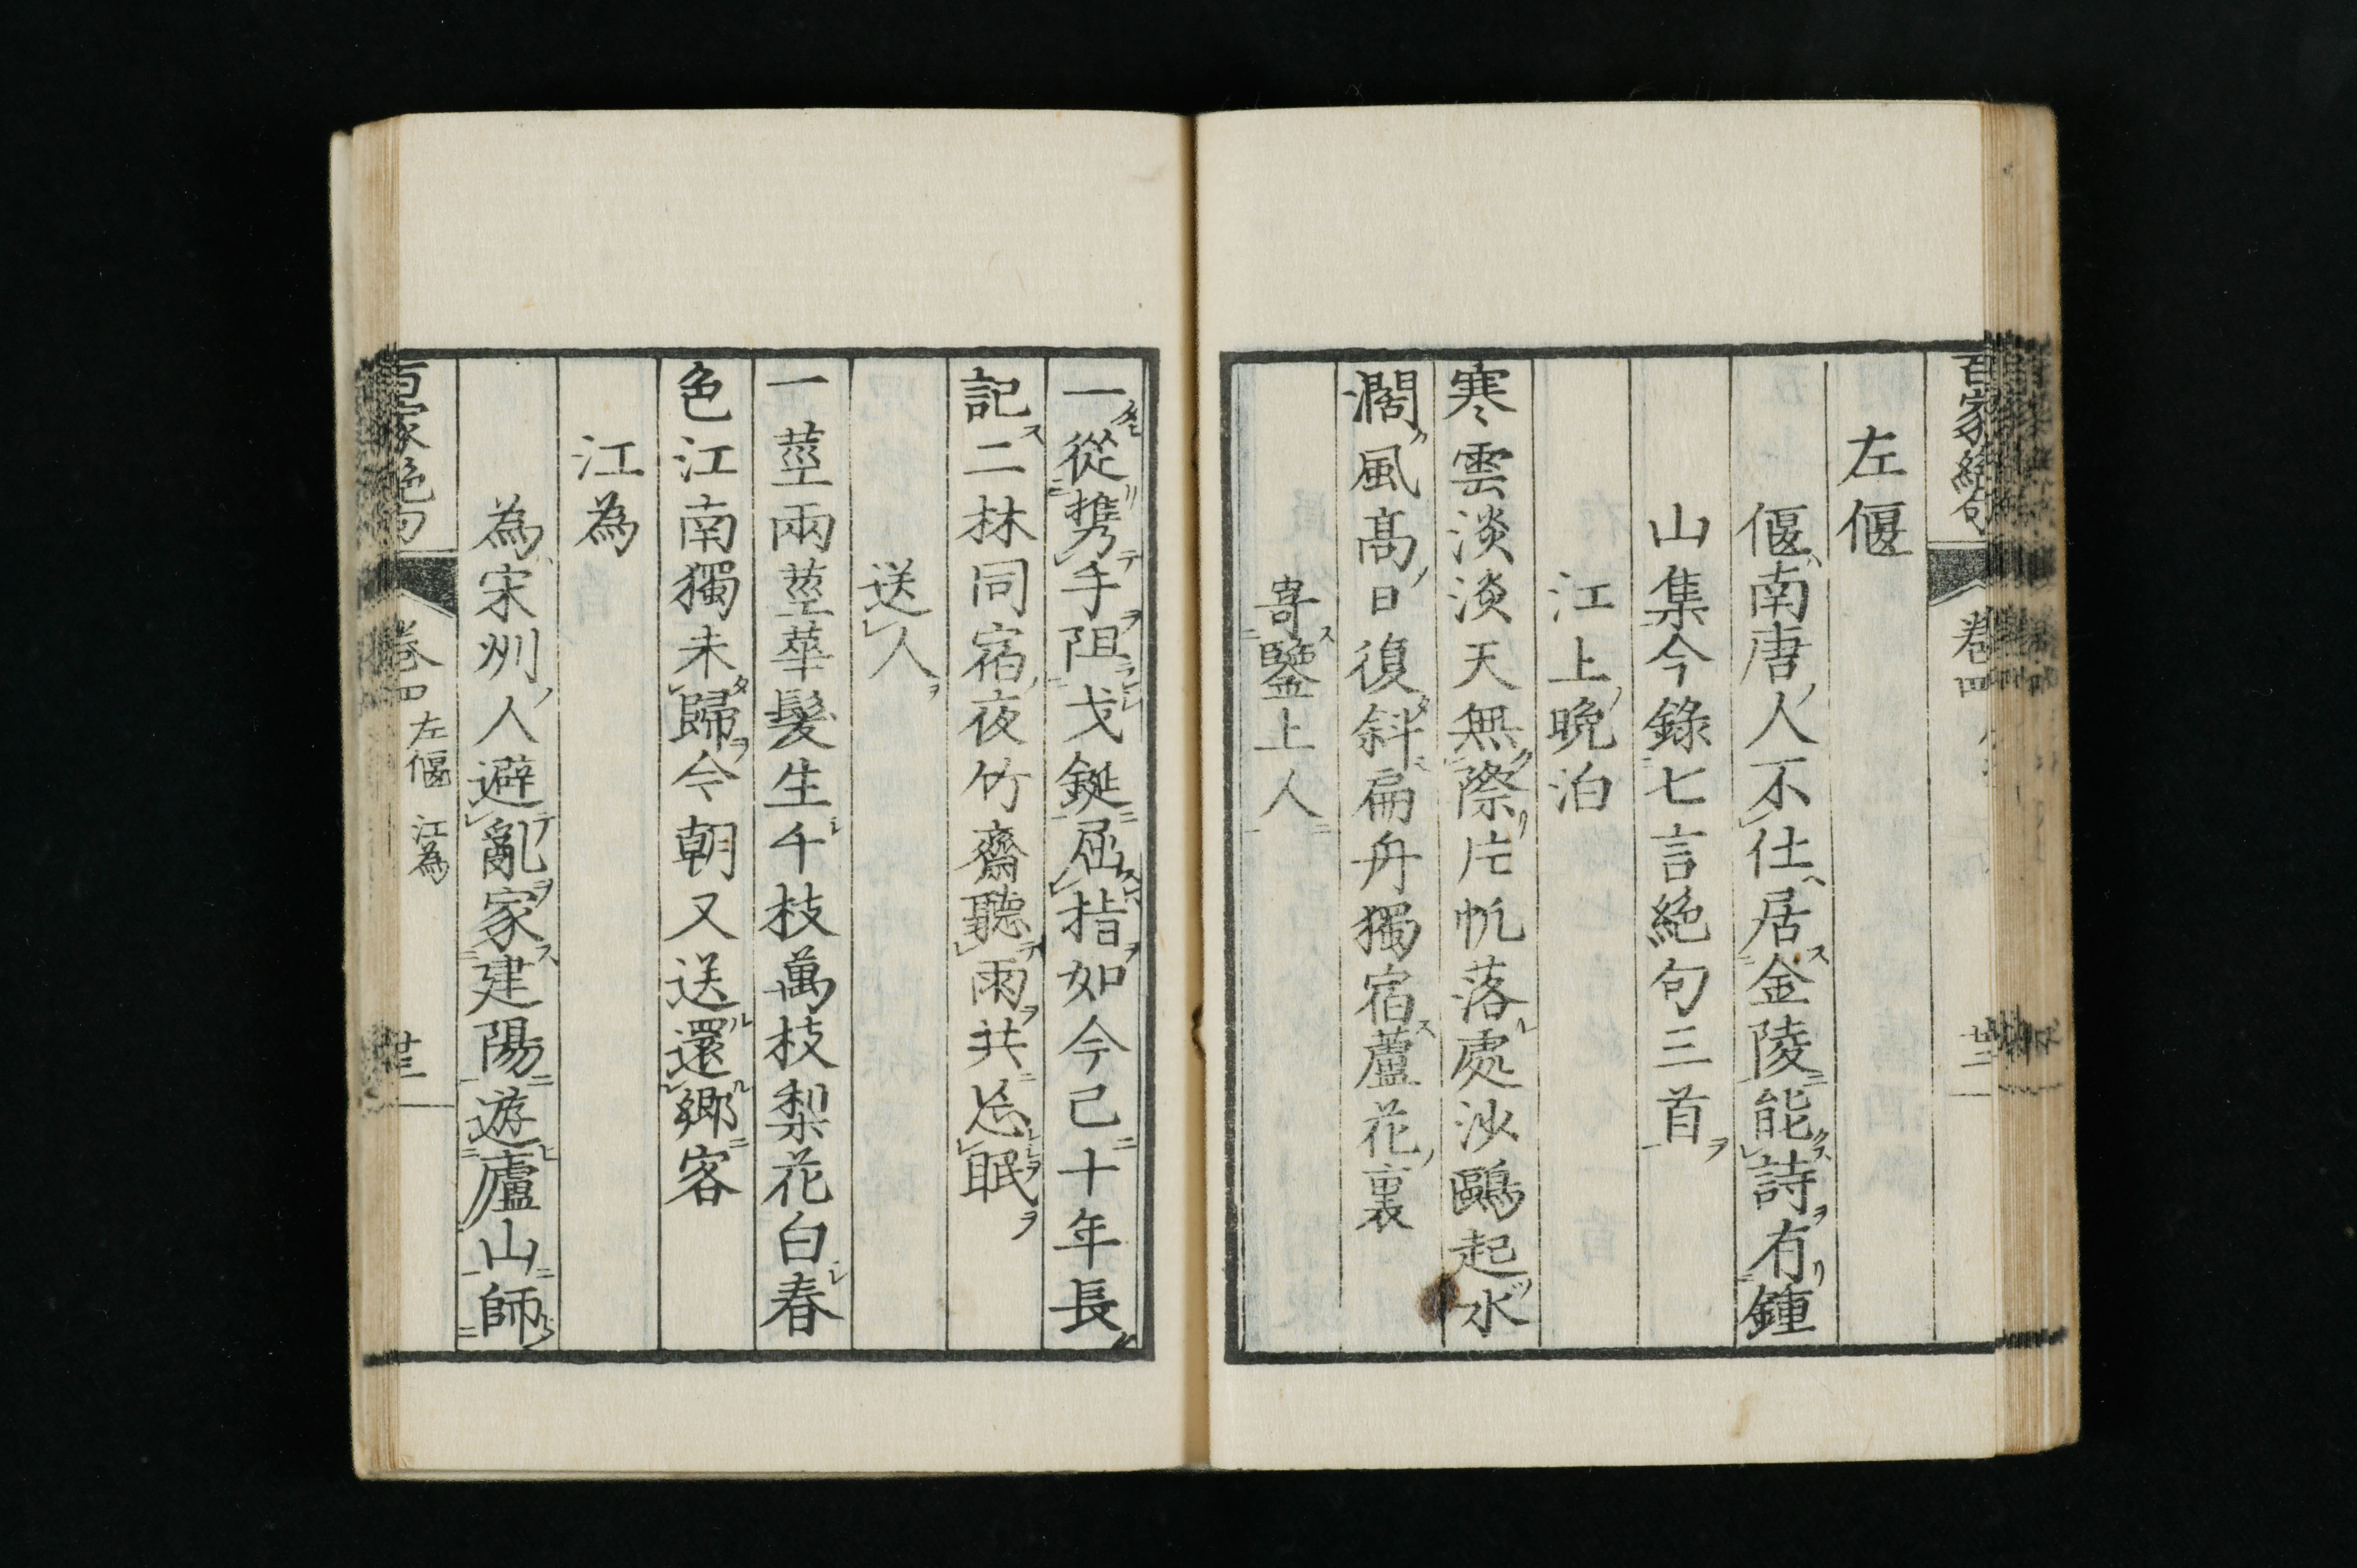 百家絶句 卷四 廿二
左偃
偃南唐人不仕居金陵能詩有鍾
山集今錄七言絶句三首
江上晩泊
寒雲淡淡天無際片帆落處沙鷗起水
濶風高日復斜扁舟獨宿蘆花裏
寄鑒上人
一從携手阻戈鋋屈指如今已十年長
記二林同宿夜竹齋聽雨共忘眠
送人
一莖兩莖華髮生千枝萬枝梨花白春
色江南獨未歸今朝又送還鄉客
江為
為宋州人避亂家建陽遊廬山師
百家絶句 卷四 左偃 江為